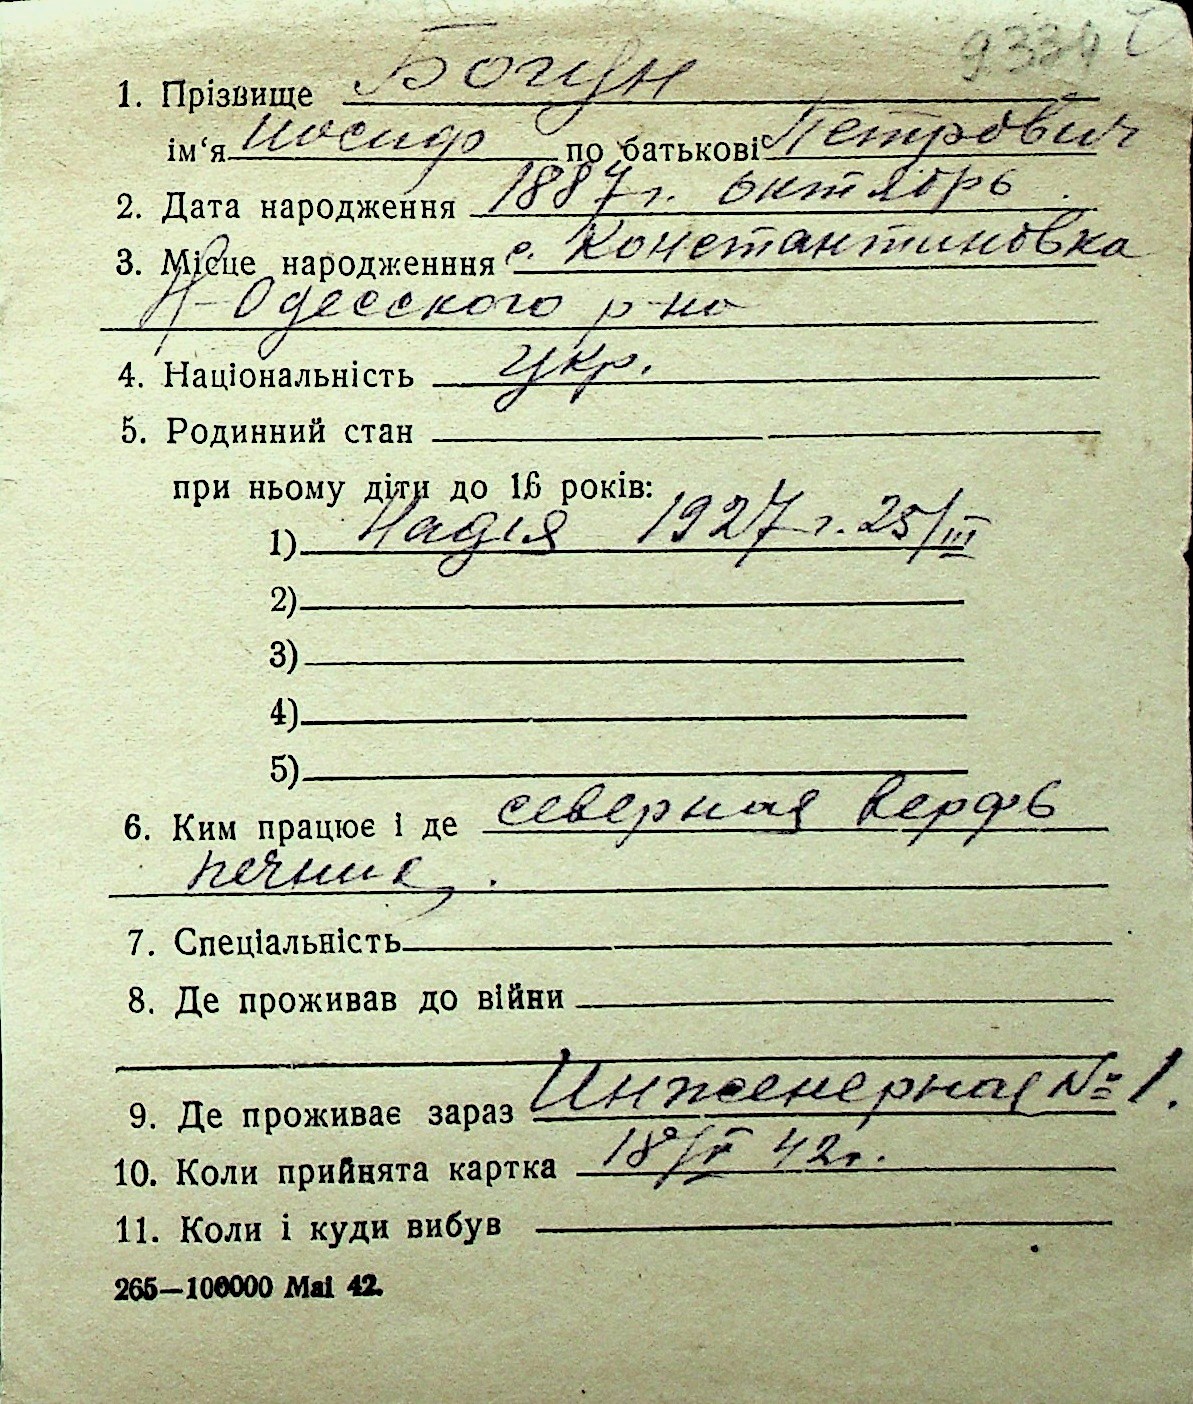 9334
1. Прізвище Богун
ім‘я Иосиф по батькові Петрович
2. Дата народження 1887 г. октябрь.
3. Місце народженння с. Константиновка
Н-Одесского р-на
4. Національність укр.
5. Родинний стан
при ньому діти до 16 років:
1) Надія 1927 г. 25/III
2)
3)
4)
5)
6. Ким працює і де северная верфь
печник.
7. Спеціальність
8. Де проживав до війни
9. Де проживає зараз Инженерная № 1.
10. Коли прийнята картка 18/V 42 г.
11. Коли і куди вибув
265—100000 Mai 42.